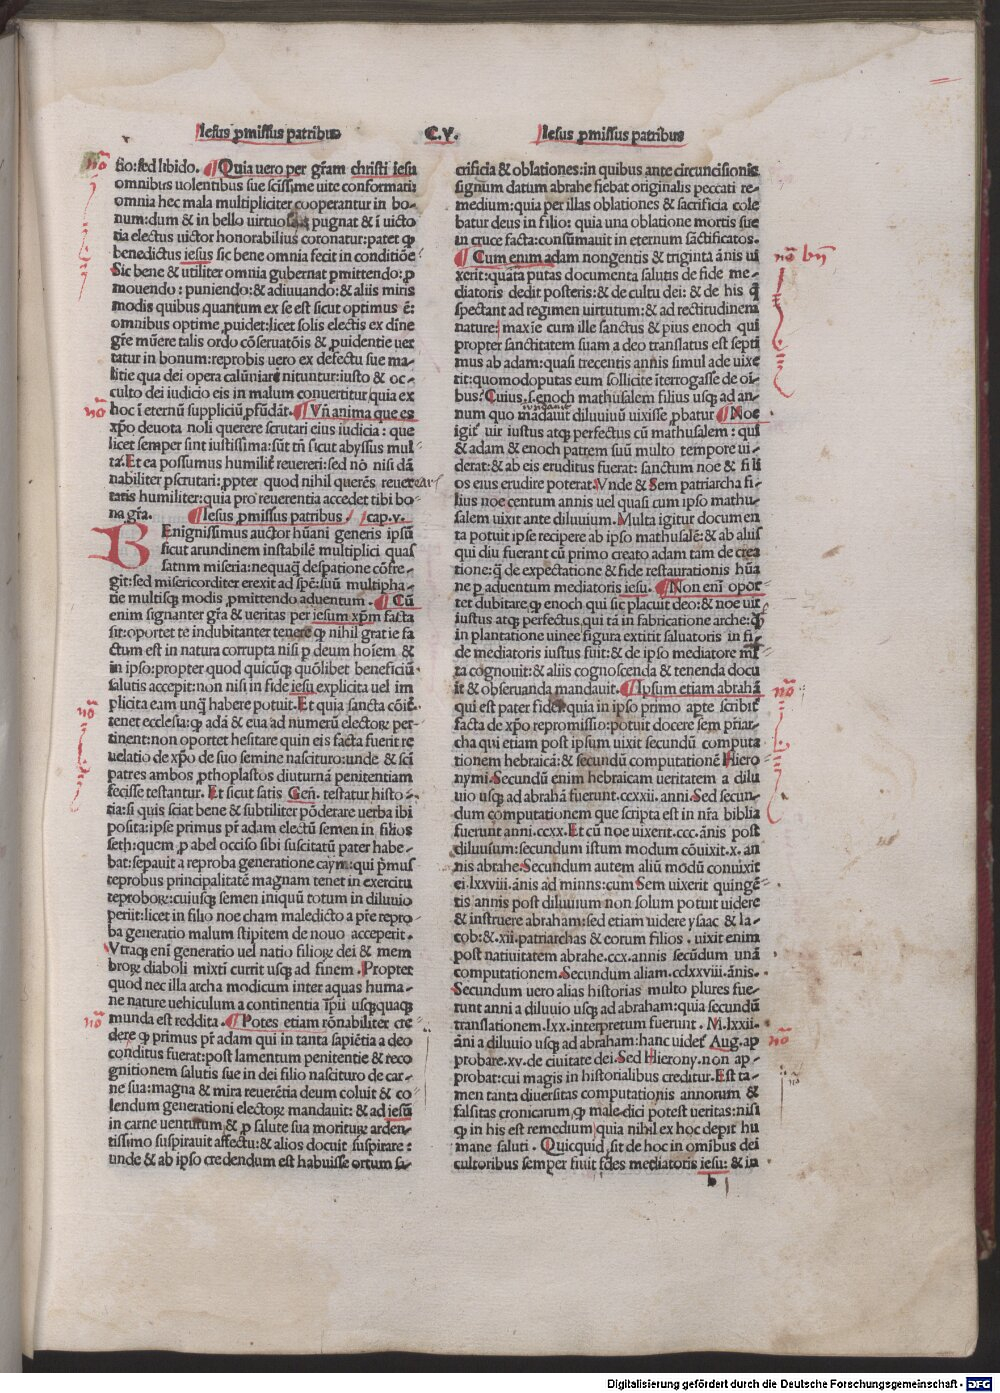 Iesus ꝓmissus patribus
C.V.
Iesus ꝓmissus patribus
tio: sed libido. ¶ Quia uero per gr̃am christi iesu
omnibus uolentibus sue scissime uite conformati:
omnia hec mala multipliciter cooperantur in bo-
num: dum & in bello uirtuosa pugnat & ĩ uicto
ria electus uictor honorabilius coronatur: patet ꝙ
benedictus iesus sic bene omnia fecit in conditiõe
Sic bene & utiliter omnia gubernat ꝑmittendo: ꝓ
mouendo: puniendo: & adiuuando: & aliis miris
modis quibus quantum ex se est sicut optimus ẽ:
omnibus optime ꝓuidet: licet solis electis ex diñe
gr̃e mũere talis ordo cõseruatõis & ꝓuidentie uer
tatur in bonum: reprobis uero ex defectu sue ma-
litie qua dei opera calũniare nituntur: iusto & oc-
culto dei iudicio eis in malum conuertitur quia ex
hoc ĩ eternũ suppliciũ ꝓfũdãt. ¶ Vñ anima que es
xp̃o deuota noli querere scrutari eius iudicia: que
licet semper sint iustissima: sũt tñ sicut abyssus mul
ta. Et ea possumus humilit̃ reuereri: sed nõ nisi dã
nabiliter ꝑscrutari: ꝓpter quod nihil querẽs reuere
tatis humiliter: quia pro reuerentia accedet tibi bo-
na gr̃a. ¶ Iesus ꝓmissus patribus. cap. v.
BEnignissimus auctor hũani generis ipsũ
sicut arundinem instabilẽ multiplici quas
satum miseria: nequaꝗ̃ despatione cõfre-
git: sed misericorditer erexit ad spẽ: suũ multipha-
rie multisqꝫ modis ꝓmittendo aduentum. ¶ Cũ
enim signanter gr̃a & ueritas per iesum xp̃m facta
sit: oportet te indubitanter tenere ꝙ nihil gratie fa
ctum est in natura corrupta nisi ꝑ deum hoĩem &
in ipso: propter quod quicũqꝫ quõlibet beneficiũ
salutis accepit: non nisi in fide iesu explicita uel im
plicita eam unꝗ̃ habere potuit. Et quia sancta cõit̃
tenet ecclesia: ꝙ adã & eua ad numerũ electoꝝ per-
tinent: non oportet hesitare quin eis facta fuerit re
uelatio de xp̃o de suo semine nascituro: unde & scĩ
patres ambos ꝓthoplastos diuturnã penitentiam
fecisse testantur. Et sicut satis Geñ. testatur histo-
ria: si quis sciat bene & subtiliter põderare uerba ibi
posita: ipse primus pr̃ adam electũ semen in filios
seth: quem ꝓ abel occiso sibi suscitatũ pater habe-
bat: sepauit a reproba generatione caym: qui p̃mus
reprobus principalitatẽ magnam tenet in exercitu
reproboꝝ: cuiusqꝫ semen iniquũ totum in diluuio
periit: licet in filio noe cham maledicto a pr̃e repro-
ba generatio malum stipitem de nouo acceperit.
Vtraqꝫ enĩ generatio uel natio filioꝝ dei & mem
broꝝ diaboli mixtĩ currit usqꝫ ad finem. Propter
quod nec illa archa modicum inter aquas huma-
ne nature uehiculum a continentia ĩpii usqꝫquaqꝫ
munda est reddita. ¶ Potes etiam rõnabiliter cre
dere ꝙ primus pr̃ adam qui in tanta sapiẽtia a deo
conditus fuerat: post lamentum penitentie & reco
gnitionem salutis sue in dei filio nascituro de car-
ne sua: magna & mira reuerẽtia deum coluit & co-
lendum generationi electoꝝ mandauit: & ad iesũ
in carne uenturum & ꝓ salute sua morituꝝ arden-
tissimo suspirauit affectu: & alios docuit suspirare:
unde & ab ipso credendum est habuisse ortum sa-
crificia & oblationes: in quibus ante circuncisionis
signum datum abrahe fiebat originalis peccati re-
medium: quia per illas oblationes & sacrificia cole
batur deus in filio: quia una oblatione mortis sue
in cruce facta: consũmauit in eternum sãctificatos.
¶ Cum enim adam nongentis & triginta ãnis ui
xerit: quãta putas documenta salutis de fide me-
diatoris dedit posteris: & de cultu dei: & de his ꝗ̃
spectant ad regimen uirtutum: & ad rectitudinem
nature: maxie cum ille sanctus & pius enoch qui
propter sanctitatem suam a deo translatus est septi
mus ab adam: quasi trecentis annis simul ade uixe
rit: quomodo putas eum sollicite ĩterrogasse de oĩ-
bus? Cuius .s. enoch mathusalem filius usqꝫ ad an-
num quo inũdauit diluuiuũ uixisse ꝓbatur ¶ Noe
igit̃ uir iustus atqꝫ perfectus cũ mathusalem: qui
& adam & enoch patrem suũ multo tempore ui-
derat: & ab eis eruditus fuerat: sanctum noe & fili
os eius erudire poterat. Vnde & Sem patriarcha fi-
lius noe centum annis uel quasi cum ipso mathu-
salem uixit ante diluuium. Multa igitur documen
ta potuit ipse recipere ab ipso mathusalẽ: & ab aliis
qui diu fuerant cũ primo creato adam tam de crea
tione: ꝗ̃ de expectatione & fide restaurationis hũa
ne ꝑ aduentum mediatoris iesu. ¶ Non enĩ opor-
tet dubitare ꝙ enoch qui sic placuit deo: & noe uir
iustus atqꝫ perfectus qui tã in fabricatione arche: ꝗ̃
in plantatione uinee figura extitit saluatoris in fi-
de mediatoris iustus fuit: & de ipso mediatore ml̃
ta cognouit: & aliis cognoscenda & tenenda docu
it & obseruanda mandauit. ¶ Ipsum etiam abrahã
qui est pater fidei: quia in ipso primo apte scribit̃
facta de xp̃o repromissio: potuit docere sem pr̃iar-
cha qui etiam post ipsum uixit secundũ computa
tionem hebraicã: & secundũ computationẽ Hiero
nymi. Secundũ enim hebraicam ueritatem a dilu
uio usqꝫ ad abrahã fuerunt. ccxxii. anni. Sed secun-
dum computationem que scripta est in nr̃a biblia
fuerunt anni. ccxx. Et cũ noe uixerit. ccc. ãnis post
diluuium: secundum istum modum cõuixit. x. an
nis abrahe. Secundum autem aliũ modũ conuixit
ei. lxxviii. ãnis ad minus: cum Sem uixerit quingẽ-
tis annis post diluuium non solum potuit uidere
& instruere abraham: sed etiam uidere ysaac & Ia-
cob: &. xii. patriarchas & eorum filios. uixit enim
post natiuitatem abrahe. ccx. annis secũdum unã
computationem. Secundum aliam. cclxxviii. ãnis.
Secundum uero alias historias multo plures fue-
runt anni a diluuio usqꝫ ad abraham: quia secundũ
translationem. lxx. interpretum fuerunt. M. lxxii.
ãni a diluuio usqꝫ ad abraham: hanc uidet̃ Aug. ap
probare. xv. de ciuitate dei. Sed Hierony. non ap-
probat: cui magis in historialibus creditur. Est ta-
men tanta diuersitas computationis annorum &
falsitas cronicarum, ꝙ male dici potest ueritas: nisi
ꝙ in his est remedium quia nihil ex hoc depit hu
mane saluti. Quicquid sit de hoc in omĩbus dei
cultoribus semper fuit fides mediatoris iesu: & in
b
Digitalisierung gefördert durch die Deutsche Forschungsgemeinschaft - DFG